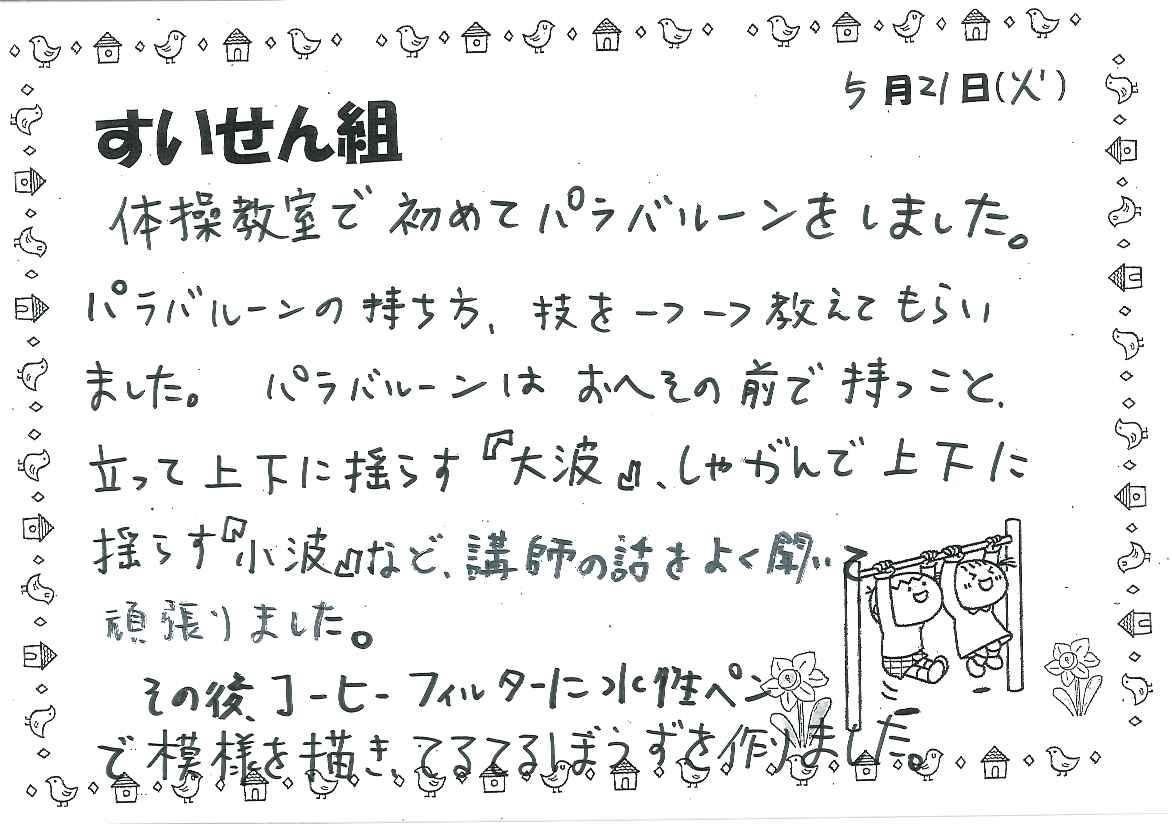 5月21日(火)
すいせん組
体操教室で初めてパラバルーンをしました。
パラバルーンの持ち方、技を一つ一つ教えてもらい
ました。 パラバルーンはおへその前で持つこと、
立って上下に揺らす『大波』、しゃがんで上下に
揺らす『小波』など、講師の話をよく聞いて
頑張りました。
その後、コーヒーフィルターに水性ペン
で模様を描き、てるてるぼうずを作りました。